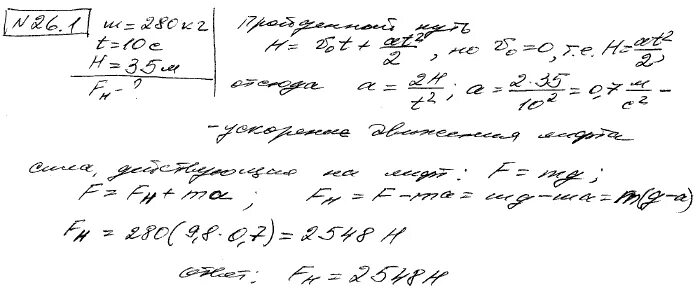 N 26.1
m = 280 кг
t = 10 c
H = 35 м
Fн - ?
Пройденный путь
H = v₀t + at²/2, но v₀ = 0, т.е. H = at²/2,
отсюда a = 2H/t²; a = 2·35/10² = 0,7 м/с² -
- ускорение движения лифта
сила, действующая на лифт: F = mg;
F = Fн + ma; Fн = F - ma = mg - ma = m(g-a)
Fн = 280(9,8·0,7) = 2548 Н
ответ: Fн = 2548 Н